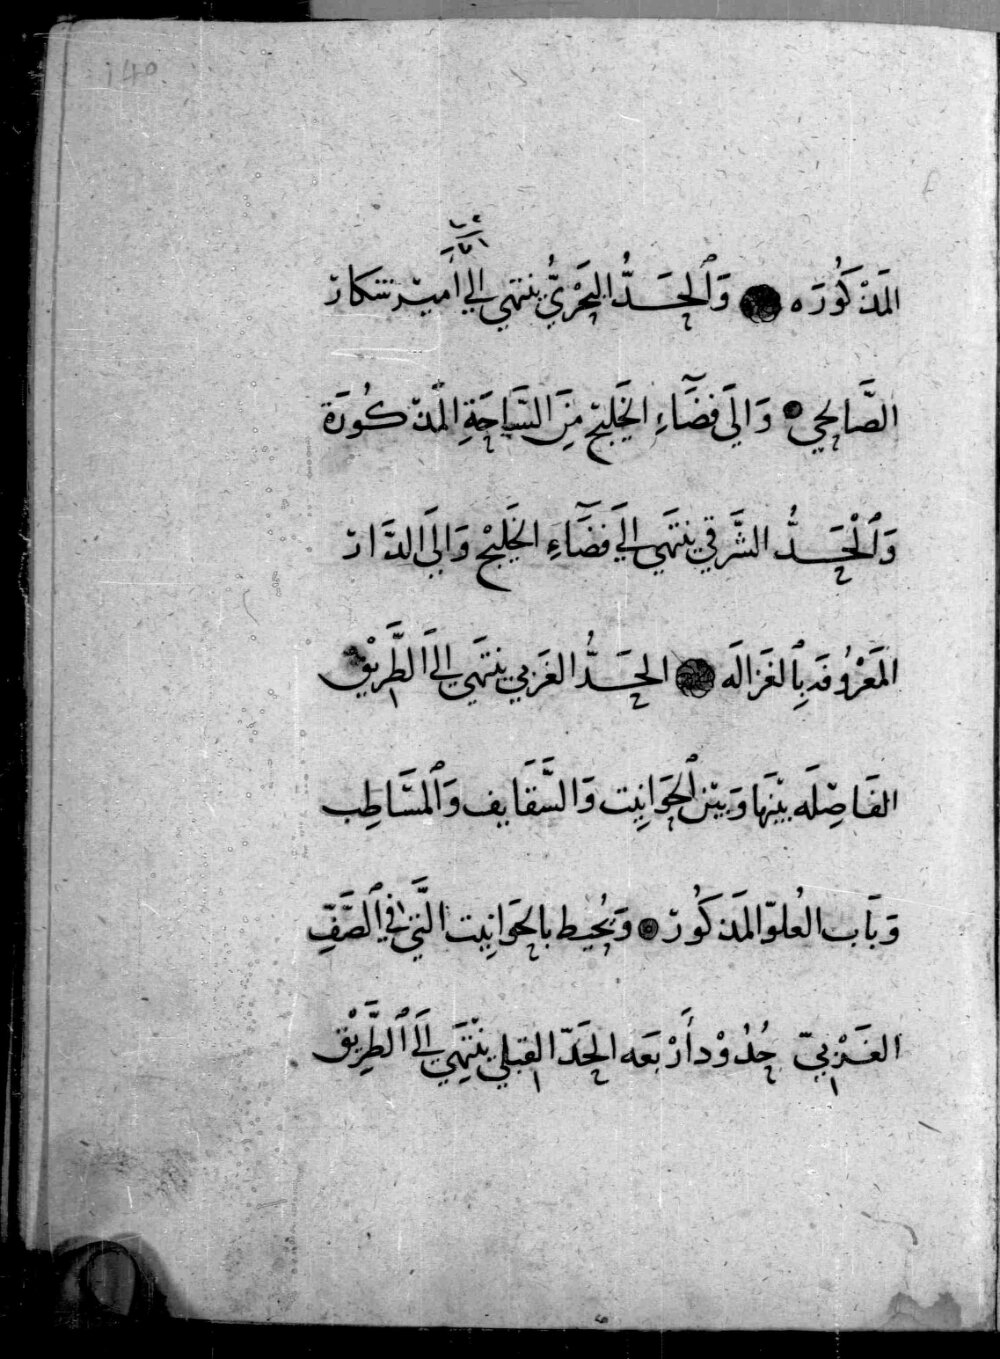 المَذْكُورَه وَٱلحَدُّ البَحْرِيُّ ينتهي الي أَمِير شكار
الصَّالحِي وَالَي فضَآءِ الخَلِيج مِنَ السَّاحَةِ المَذْكُورَة
وَٱلْحَدُّ الشَّرقي ينتَهي الَي فضَآءِ الخَلِيْج وَالَي الدَّار
المَعْرُوفَه بِٱلغَزالَه الحَدُّ الغَربي ينتَهي الَي الطَّرِيْق
الفَاصِلَه بيْنَهَا وَبيْن ٱلحَوَانِيت وَالسَّقَايف وَٱلمسَاطِب
وَبَاب العُلوّ المَذكُور وَيُحيط بالحَوَانِيت الَّتي في ٱلصَّفِّ
الغَرْبيّ حُدُوْد أَرْبعَه الحَدّ القبلي ينْتَهِي الَي ٱلطَّرِيْق